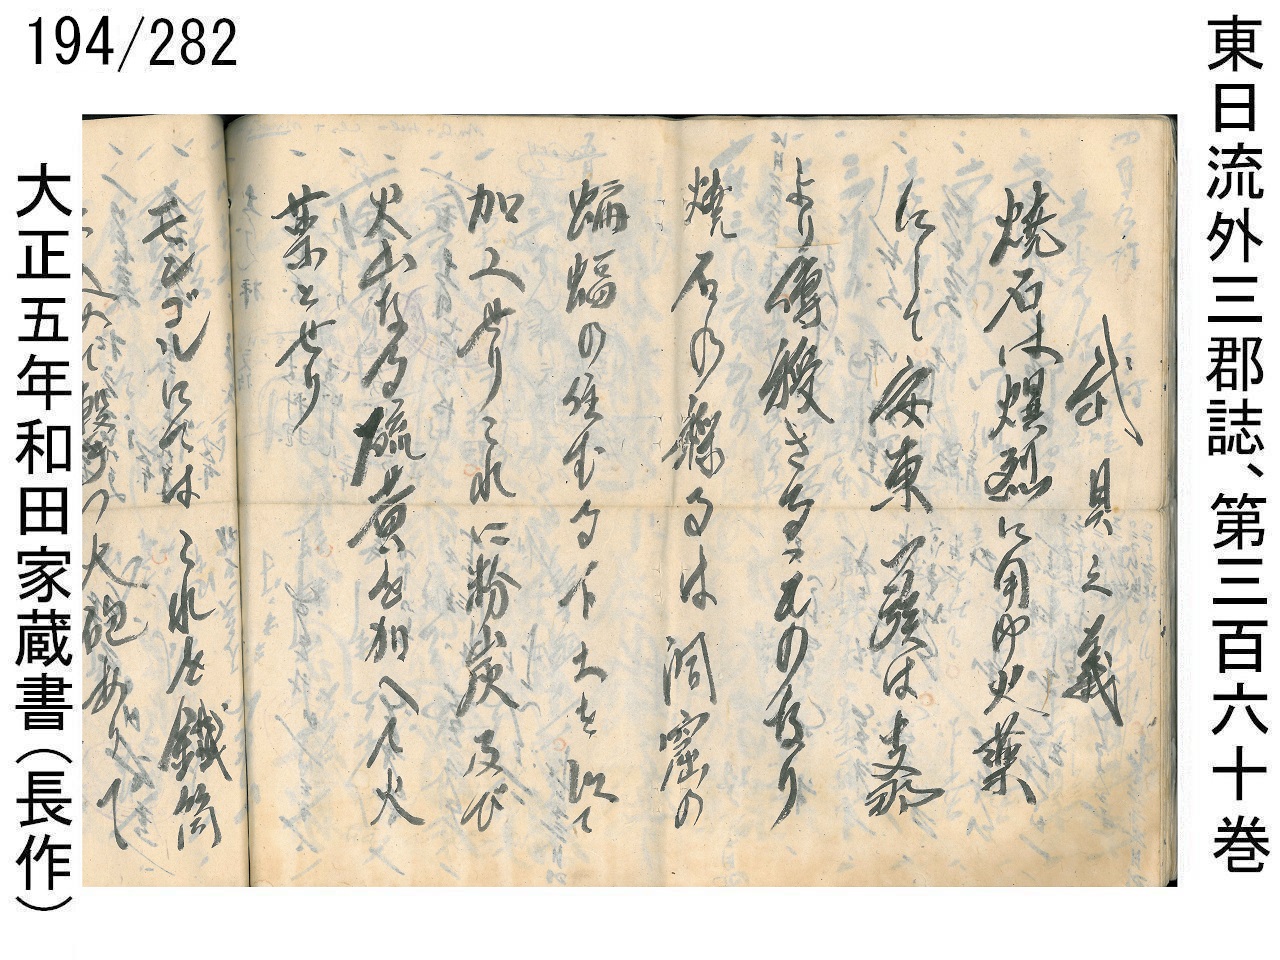 194/282
東日流外三郡誌、第三百六十巻
武具之義
焼石は爆烈に用ゆ火薬
にして安東一族は支那
より傳授さるゝものなり
焼石の錬るは洞窟の
蝙蝠の住むる下土を以て
加へせりこれに粉炭及び
火山なる硫黄を加へて火
薬とせり
モンゴルにてはこれを鐵筒
大砲ありて
大正五年和田家蔵書(長作)